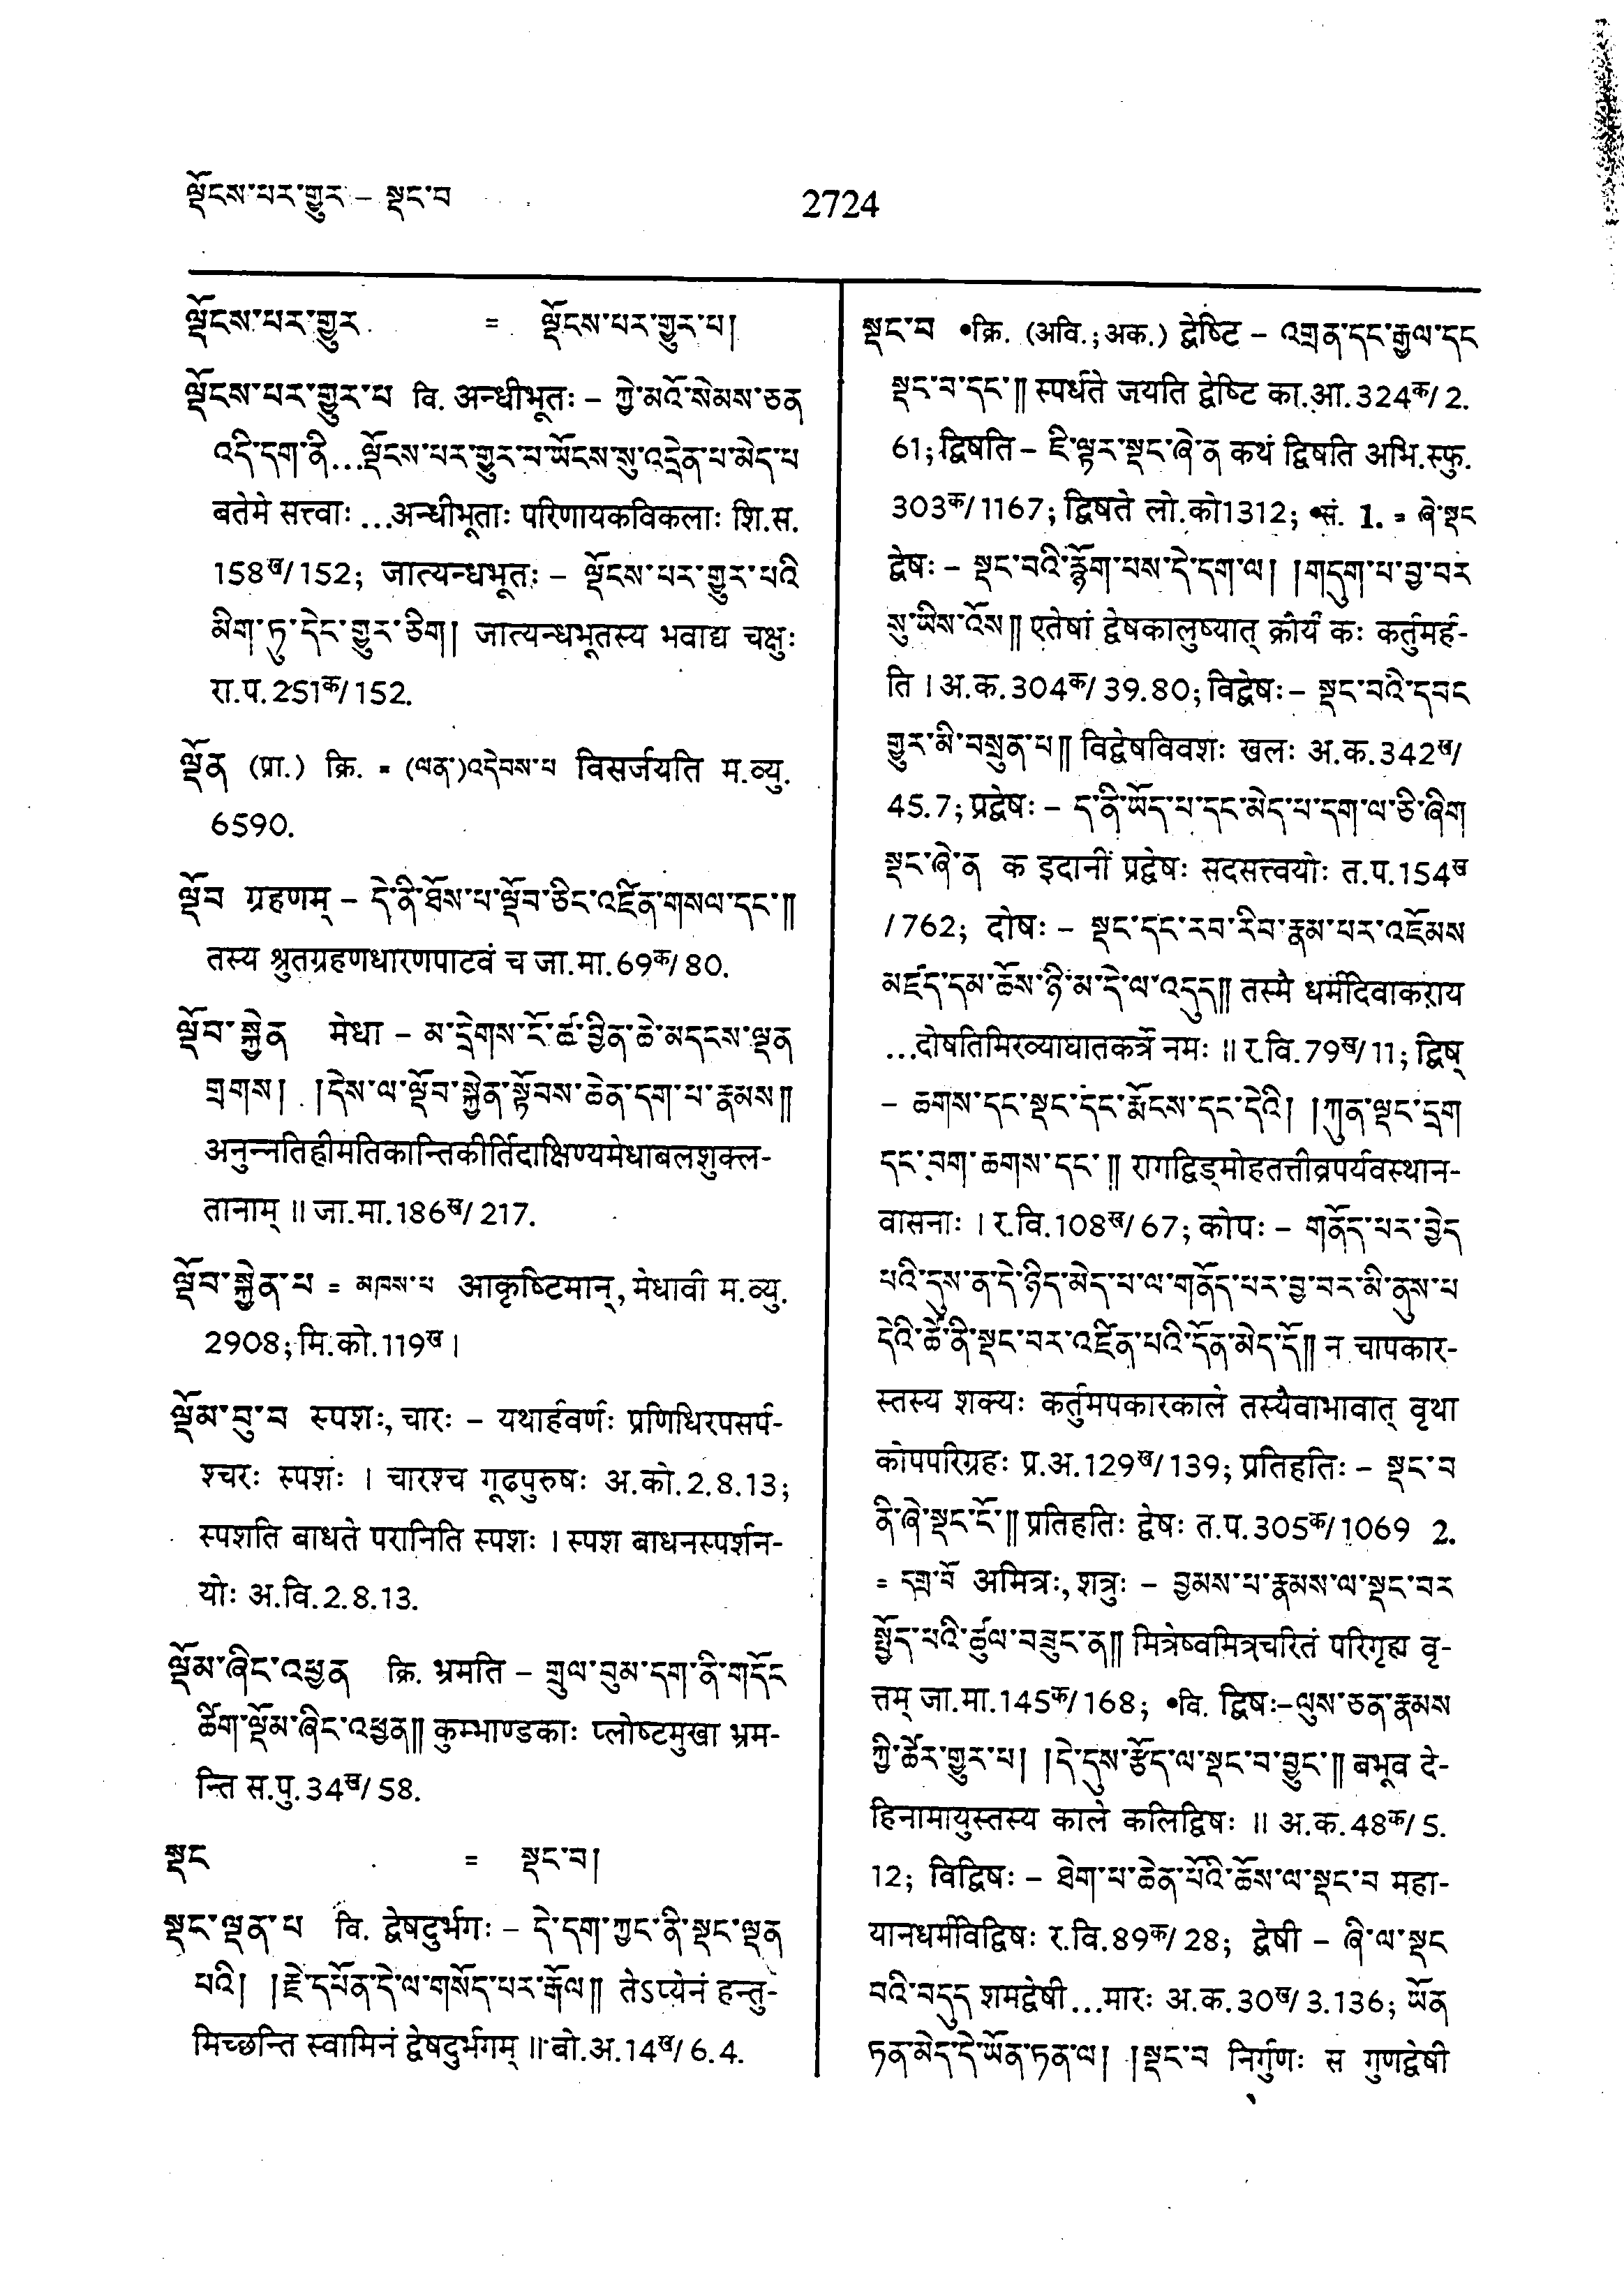 ལྡོངས་པར་གྱུར – སྡང་བ
2724
ལྡོངས་པར་གྱུར = ལྡོངས་པར་གྱུར་པ།
ལྡོངས་པར་གྱུར་པ वि. अन्धीभूतः – ཀྱེ་མའོ་སེམས་ཅན
འདི་དག་ནི...ལྡོངས་པར་གྱུར་པ་ཡོངས་སུ་འདྲེན་པ་མེད་པ
बतेमे सत्त्वाः ...अन्धीभूताः परिणायकविकलाः शि.स.
158ख/152; जात्यन्धभूतः – ལྡོངས་པར་གྱུར་པའི
མིག་ཏུ་དེང་གྱུར་ཅིག། जात्यन्धभूतस्य भवाद्य चक्षुः
रा.प.251क/152.
ལྡོན (प्रा.) क्रि. = (ལན་)འདེབས་པ विसर्जयति म.व्यु.
6590.
ལྡོབ ग्रहणम् – དེ་ནི་ཐོས་པ་ལྡོབ་ཅིང་འཛིན་གསལ་དང་༎
तस्य श्रुतग्रहणधारणपाटवं च जा.मा.69क/80.
ལྡོབ་སྐྱེན मेधा – མ་དྲེགས་ངོ་ཚ་བྱིན་ཆེ་མདངས་ལྡན
གྲགས། །དེས་ལ་ལྡོབ་སྐྱེན་སྟོབས་ཆེན་དག་པ་རྣམས༎
अनुन्नतिह्रीमतिकान्तिकीर्तिदाक्षिण्यमेधाबलशुक्ल-
तानाम् ॥ जा.मा.186ख/217.
ལྡོབ་སྐྱེན་པ = མཁས་པ आकृष्टिमान्, मेधावी म.व्यु.
2908; मि.को.119ख ।
ལྡོམ་བུ་བ स्पशः, चारः – यथार्हवर्णः प्रणिधिरपसर्प-
श्चरः स्पशः । चारश्च गूढपुरुषः अ.को.2.8.13;
स्पशति बाधते परानिति स्पशः । स्पश बाधनस्पर्शन-
योः अ.वि.2.8.13.
ལྡོམ་ཞིང་འཕྱན क्रि. भ्रमति – གྲུལ་བུམ་དག་ནི་གདོང
ཚིག་ལྡོམ་ཞིང་འཕྱན༎ कुम्भाण्डकाः प्लोष्टमुखा भ्रम-
न्ति स.पु.34ख/58.
སྡང = སྡང་བ།
སྡང་ལྡན་པ वि. द्वेषदुर्भगः – དེ་དག་ཀྱང་ནི་སྡང་ལྡན
པའི། །རྗེ་དཔོན་དེ་ལ་གསོད་པར་རྒོལ༎ तेऽप्येनं हन्तु-
मिच्छन्ति स्वामिनं द्वेषदुर्भगम् ॥ बो.अ.14ख/6.4.
སྡང་བ •क्रि. (अवि.;अक.) द्वेष्टि – འགྲན་དང་རྒྱལ་དང
སྡང་བ་དང་༎ स्पर्धते जयति द्वेष्टि का.आ.324क/2.
61; द्विषति – ཇི་ལྟར་སྡང་ཞེ་ན कथं द्विषति अभि.स्फु.
303क/1167; द्विषते लो.को1312; •सं. 1. = ཞེ་སྡང
द्वेषः – སྡང་བའི་རྙོག་པས་དེ་དག་ལ། །གདུག་པ་བྱ་བར
སུ་ཡིས་འོས༎ एतेषां द्वेषकालुष्यात् क्रौर्यं कः कर्तुमर्ह-
ति । अ.क.304क/39.80; विद्वेषः – སྡང་བའི་དབང
གྱུར་མི་བསྲུན་པ༎ विद्वेषविवशः खलः अ.क.342ख/
45.7; प्रद्वेषः – ད་ནི་ཡོད་པ་དང་མེད་པ་དག་ལ་ཅི་ཞིག
སྡང་ཞེ་ན क इदानीं प्रद्वेषः सदसत्त्वयोः त.प.154ख
/762; दोषः – སྡང་དང་རབ་རིབ་རྣམ་པར་འཇོམས
མཛད་དམ་ཆོས་ཉི་མ་དེ་ལ་འདུད༎ तस्मै धर्मदिवाकराय
...दोषतिमिरव्याघातकर्त्रे नमः ॥ र.वि.79ख/11; द्विष्
– ཆགས་དང་སྡང་དང་རྨོངས་དང་དེའི། །ཀུན་ལྡང་དྲག
དང་བག་ཆགས་དང་༎ रागद्विड्मोहतत्तीव्रपर्यवस्थान-
वासनाः । र.वि.108ख/67; कोपः – གནོད་པར་བྱེད
པའི་དུས་ན་དེ་ཉིད་མེད་པ་ལ་གནོད་པར་བྱ་བར་མི་ནུས་པ
དེའི་ཚེ་ནི་སྡང་བར་འཛིན་པའི་དོན་མེད་དོ༎ न चापकार-
स्तस्य शक्यः कर्तुमपकारकाले तस्यैवाभावात् वृथा
कोपपरिग्रहः प्र.अ.129ख/139; प्रतिहतिः – སྡང་བ
ནི་ཞེ་སྡང་ངོ་༎ प्रतिहतिः द्वेषः त.प.305क/1069 2.
= དགྲ་བོ अमित्रः, शत्रुः – བྱམས་པ་རྣམས་ལ་སྡང་བར
སྤྱོད་པའི་ཚུལ་བཟུང་ན༎ मित्रेष्वमित्रचरितं परिगृह्य वृ-
त्तम् जा.मा.145क/168; •वि. द्विषः–ལུས་ཅན་རྣམས
ཀྱི་ཚེར་གྱུར་པ། །དེ་དུས་རྩོད་ལ་སྡང་བ་བྱུང་༎ बभूव दे-
हिनामायुस्तस्य काले कलिद्विषः ॥ अ.क.48क/5.
12; विद्विषः – ཐེག་པ་ཆེན་པོའི་ཆོས་ལ་སྡང་བ महा-
यानधर्मविद्विषः र.वि.89क/28; द्वेषी – ཞི་ལ་སྡང
བའི་བདུད शमद्वेषी...मारः अ.क.30ख/3.136; ཡོན
ཏན་མེད་དེ་ཡོན་ཏན་ལ། །སྡང་བ निर्गुणः स गुणद्वेषी